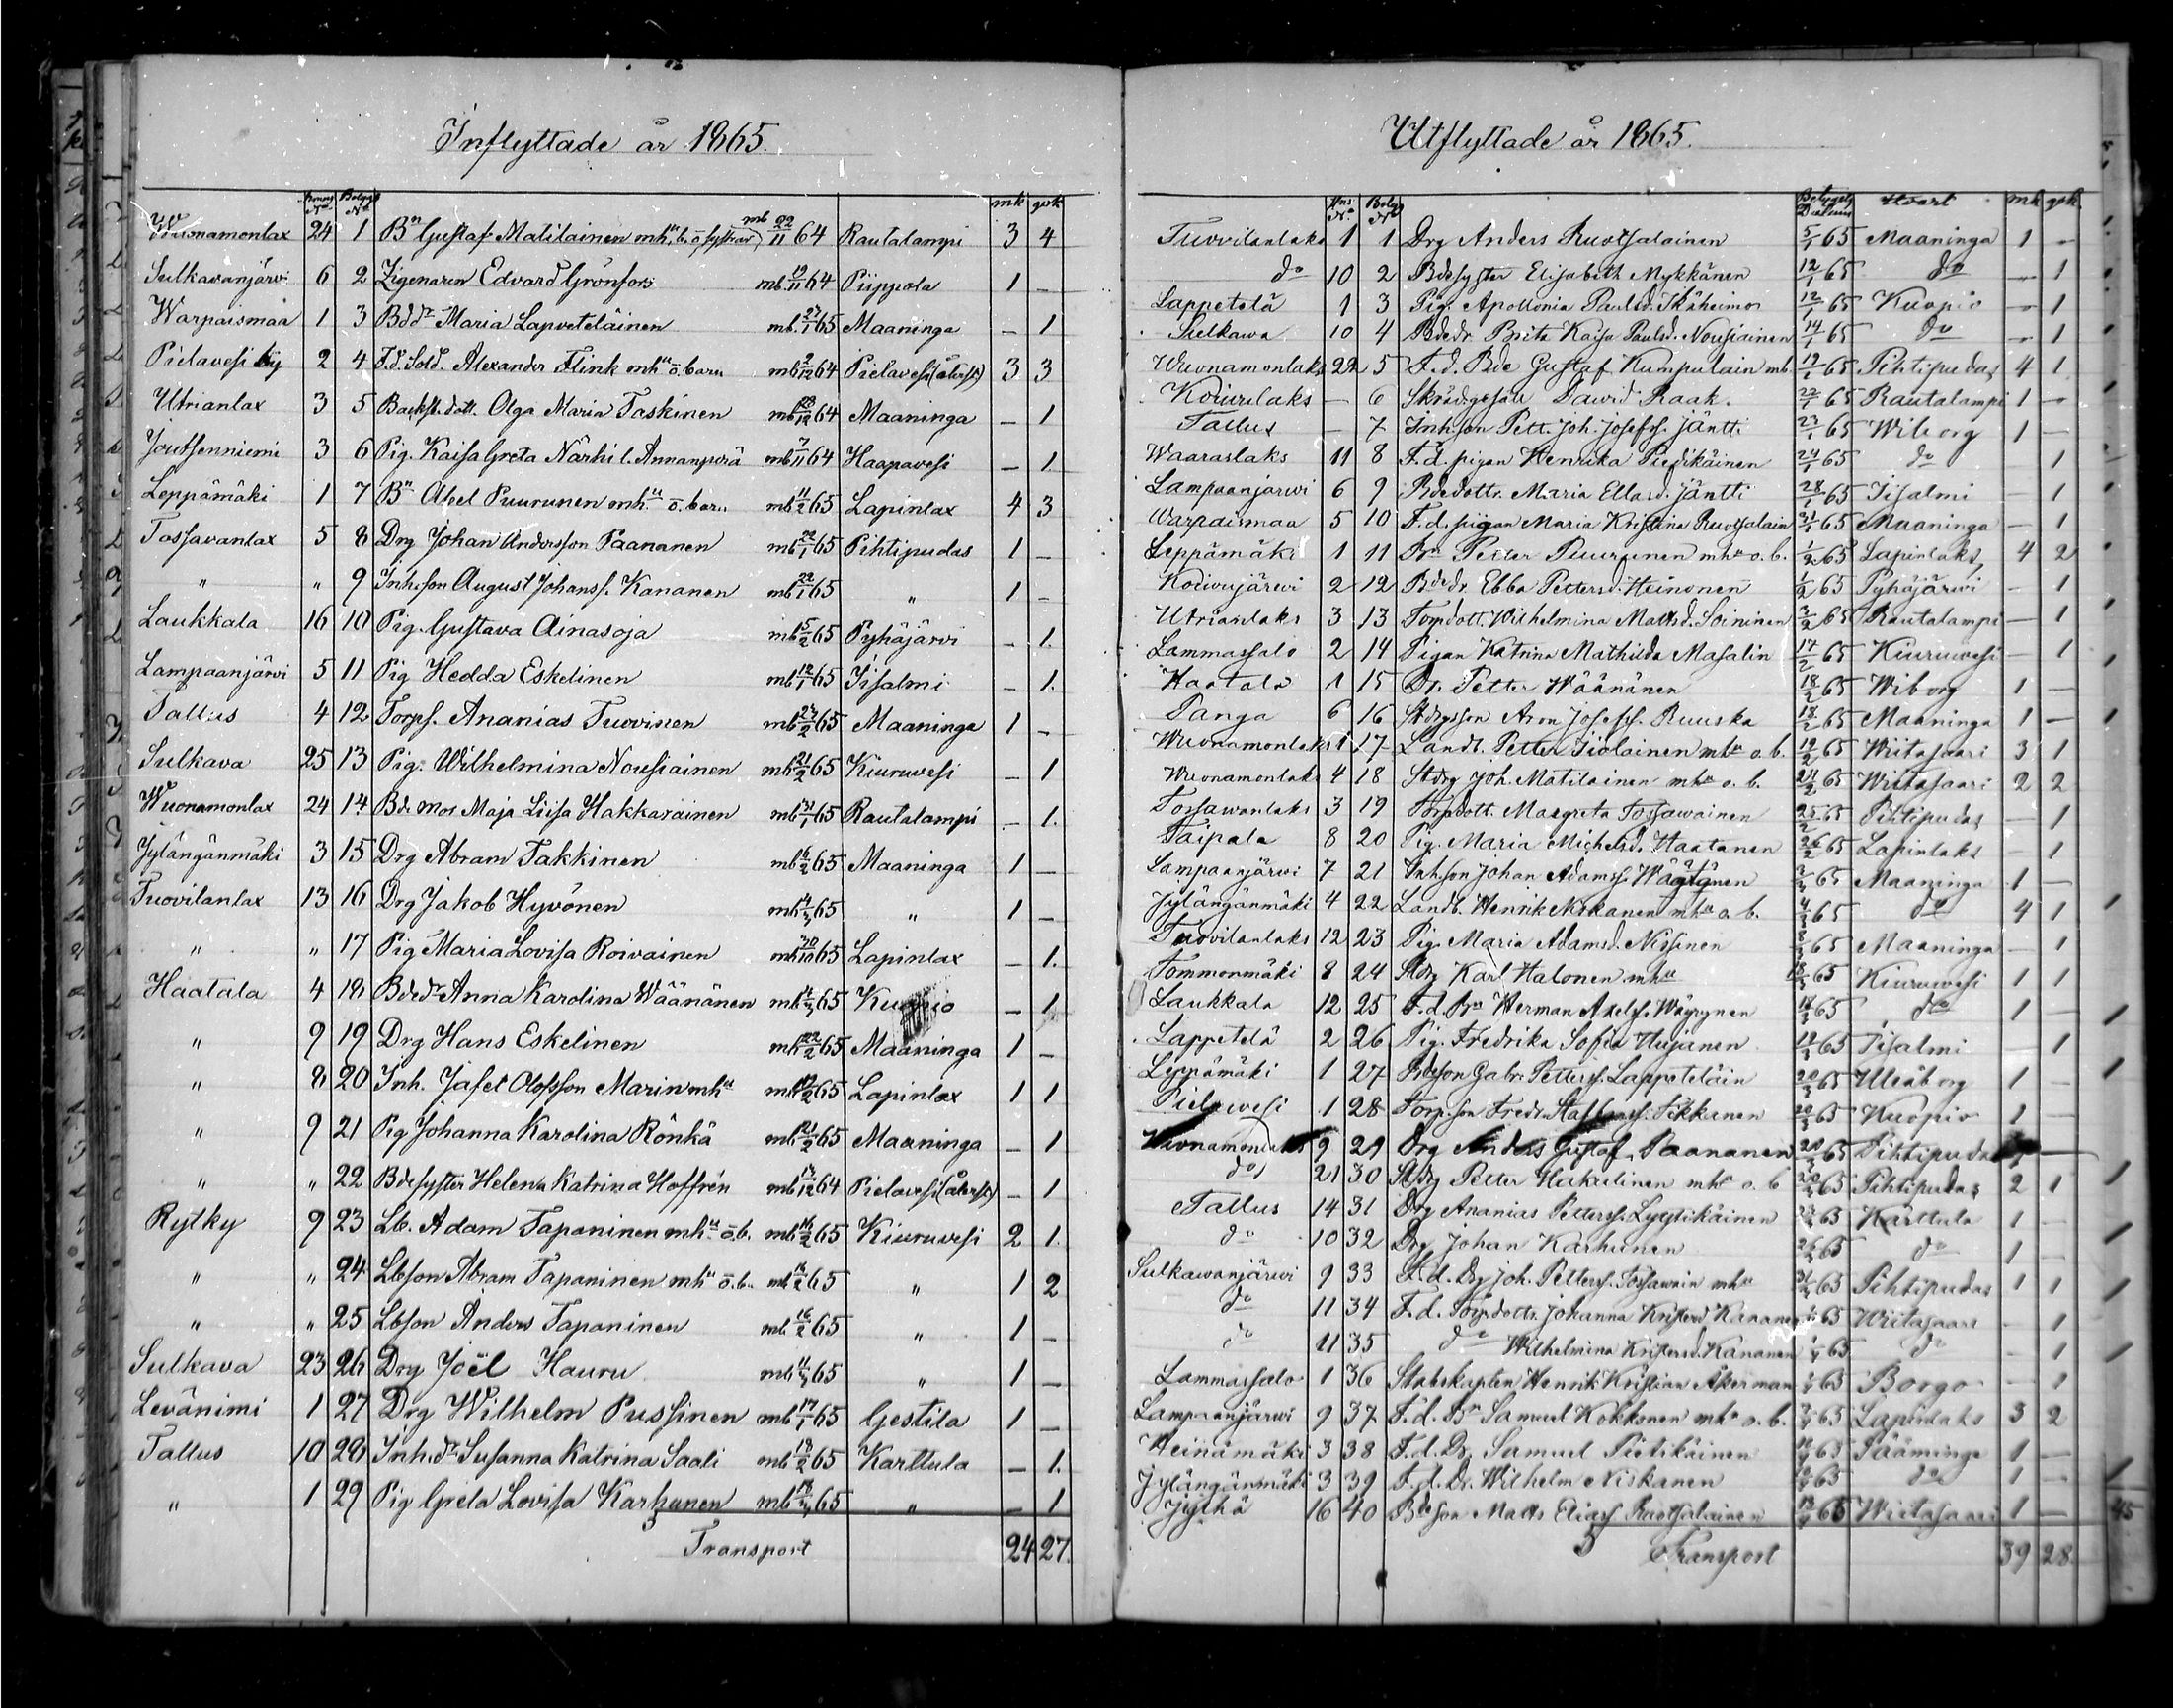 Inflyttade år 1865.
mk qvk
Wuonamonlax 24 1 Bn Gustaf Matilainen mhu, b. o systrar mb 22/11 64 Rautalampi 3 4
Sulkavanjärvi 6 2 Zigenaren Edvard Grönfors mb 19/11 64 Piippola 1 –
Warpaismaa 1 3 Bddr Maria Lapveteläinen mb. 27/1 65 Maaninga – 1
Pielavesi by 2 4 F.d. Sold. Alexander Flink mhu o. barn mb 2/12 64 Pielavesi (återst) 3 3
Utrianlax 3 5 Backst. dott. Olga Maria Toskinen mb 12/12 64 Maaninga – 1
Joutsenniemi 3 6 Pig. Kaisa Greta Närhi l. Annanperä mb 7/11 64 Haapavesi – 1.
Leppämäki 1 7 Bn Abel Puurunen mhu o. barn mb 11/2 65 Lapinlax 4 3
Tossavanlax 5 8 Drg Johan Andersson Paananen mb 22/1 65 Pihtipudas 1 –
" " 9 Inh.son August Johanss. Kananen mb 22/1 65 " 1 –
Laukkala 16 10 Pig. Gustava Ainasoja mb 5/2 65 Pyhäjärvi – 1.
Lampaanjärvi 5 11 Pig Hedda Eskelinen mb 12/1 65 Iisalmi – 1.
Tallus 4 12 Torps. Ananias Tuovinen mb 23/2 65 Maaninga 1 –
Sulkava 25 13 Pig. Wilhelmina Nousiainen mb 21/2 65 Kiuruvesi – 1
Wuonamonlax 24 14 Bde mor Maja Liisa Hakkarainen mb 31/1 65 Rautalampi – 1.
Jylängänmäki 3 15 Drg Abram Takkinen mb 16/2 65 Maaninga 1 –
Tuovilanlax 13 16 Drg Jakob Hyvönen mb 4/3 65 " 1 –
" " 17 Pig Maria Lovisa Roivainen mb 20/10 65 Lapinlax – 1.
Haatala 4 18 Bdedr Anna Karolina Wäänänen mb 4/3 65 Kuopio – 1
" 9 19 Drg Hans Eskelinen mb 22/2 65 Maaninga 1 –
" 8 20 Inh. Jafet Olofsson Marin mhu mb 12/2 65 Lapinlax 1 1
" 9 21 Pig Johanna Karolina Rönkä mb 21/2 65 Maaninga – 1
" " 22 Bdesyster Helena Katrina Hoffrén mb 13/12 64 Pielavesi (återst) – 1
Rytky 9 23 Lb. Adam Tapaninen mhu o. b. mb 16/2 65 Kiuruvesi 2 1.
" " 24 Lbson Abram Tapaninen mhu o. b. mb 16/2 65 " 1 2
" " 25 Lbson Anders Tapaninen mb 16/2 65 " 1 –
Sulkava 23 26 Drg Joël Hauru mb 11/3 65 " 1 –
Levänimi 1 27 Drg Wilhelm Pussinen mb 17/1 65 Gestila 1 –
Tallus 10 28 Inh.dr Susanna Katrina Saali mb 18/2 65 Karttula – 1.
" 1 29 Pig Greta Lovisa Karhunen mb 18/3 65 " – 1
Transport 24 27.
Utflyttade år 1865.
Hvart mk qvk
Tuovilanlaks 1 1 Drg Anders Ruotsalainen 5/1 65 Maaninga 1 –
do 10 2 Bdesyster Elisabeth Mykkänen 12/1 65 do – 1
Lappetelä 1 3 Pig. Apollonia Paulsd. Ikäheimo 12/1 65 Kuopio – 1
Sulkawa 10 4 Bdedr Brita Kaisa Paulsd. Nousiainen 14/1 65 do – 1
Wuonamonlaks 22 5 F.d. Bde Gustaf Kumpulain mb. 19/1 65 Pihtipudas 4 1
Koiwulaks – 6 Skräd.gesäll Dawid Raak. 22/1 65 Rautalampi 1 –
Tallus – 7 Inh.son Pett. Joh. Josefss. Jäntti 23/1 65 Wiborg 1 –
Waaraslaks 11 8 F.d. pigan Henrika Pietikäinen 24/1 65 do 1
Lampaanjärwi 6 9 Bdedottr. Maria Ellasd. Jäntti 28/1 65 Iisalmi – 1
Warpaismaa 5 10 F.d. pigan Maria Kristina Ruotsalain 31/1 65 Maaninga – 1
Leppämäki 1 11 Bn Petter Puurunen mhu o. b. 1/2 65 Lapinlaks 4 2
Koiwujärwi 2 12 Bdedr. Ebba Pettersd. Heinonen 1/2 65 Pyhäjärwi – 1
Utrianlaks 3 13 Torpdott. Wilhelmina Mattsd. Soininen 3/2 65 Rautalampi – 1
Lammassalo 2 14 Pigan Katrina Mathilda Masalin 17/2 65 Kiuruwesi – 1
Haatala 1 15 Dr. Petter Wäänänen 18/2 65 Wiborg 1 –
Panga 6 16 Stdrgsson Aron Josefss. Ruuska 18/2 65 Maaninga 1 –
Wuonamonlaks 1 17 Landb. Petter Iiolainen mhu o. b. 19/2 65 Wiitasaari 3 1
Wuonamonlaks 4 18 Stdrg Joh. Matilainen mhu o. b. 24/2 65 Wiitasaari 2 2
Tossawanlaks 3 19 Torpdott. Margreta Tossawainen 25/2 65 Pihtipudas – 1
Taipale 8 20 Pig. Maria Michelsd. Haatanen 26/2 65 Lapinlaks – 1
Lampaanjärwi 7 21 Inhson Johan Adamss. 3/3 65 Maaninga 1 –
Jylängänmäki 4 22 Landb. Henrik Niskanen mhu o. b. 4/3 65 do 4 1
Tuovilanlaks 12 23 Pig. Maria Adamsd. Nissinen 8/3 65 Maaninga – 1
Tommonmäki 8 24 Stdrg Karl Halonen mhu 65 Kiuruwesi 1 1
Laukkala 12 25 F.d. Bn Herman Axels. Wäyrynen 18/3 65 do 1 –
Lappetelä 2 26 Pig. Fredrika Sofia Hujanen 19/3 65 Iisalmi 1
Leppämäki 1 27 Bdeson Gabr. Petterss. Lappeteläin 20/3 65 Uleåborg 1 –
Pielawesi 1 28 Torp.son Fredr. Staffanss. Tikkanen 20/3 65 Kuopio 1 –
Wuonamonlaks 9 29 Drg Anders Gustaf Paananen 20/3 65 Pihtipudas –
do 21 30 Stdrg Petter Hakulinen mhu o. b 20/3 65 Pihtipudas 2 1
Tallus 14 31 Drg Ananias Petterss. Lyytikäinen 23/3 65 Karttula 1 –
do 10 32 Drg Johan Karhunen 26/3 65 do 1 –
Sulkawanjärwi 9 33 F.d. Drg Joh. Petterss. Tossawain mhu 31/3 65 Pihtipudas 1 1
do 11 34 F.d. Torpdottr. Johanna Kristersd Kananen 65 Wiitasaari – 1
do 11 35 do Wilhelmina Kristersd. Kananen 1/4 65 do – 1
Lammassalo 1 36 Stabskapten Henrik Kristian Åkerman 65 Borgo – 1
Lampaanjärwi 9 37 F.d. Bn Samuel Kokkonen mhu o. b. 65 Lapinlaks 3 2
Heinämäki 3 38 F.d. Dr. Samuel Pietikäinen 65 Jääminge 1 –
Jylängänmäki 3 39 F.d. Dr. Wilhelm Niskanen 65 do 1 –
Jylhä 16 40 Bdeson Matts Eliass Ruotsalainen 65 Wiitasaari 1 –
Transport 39 28